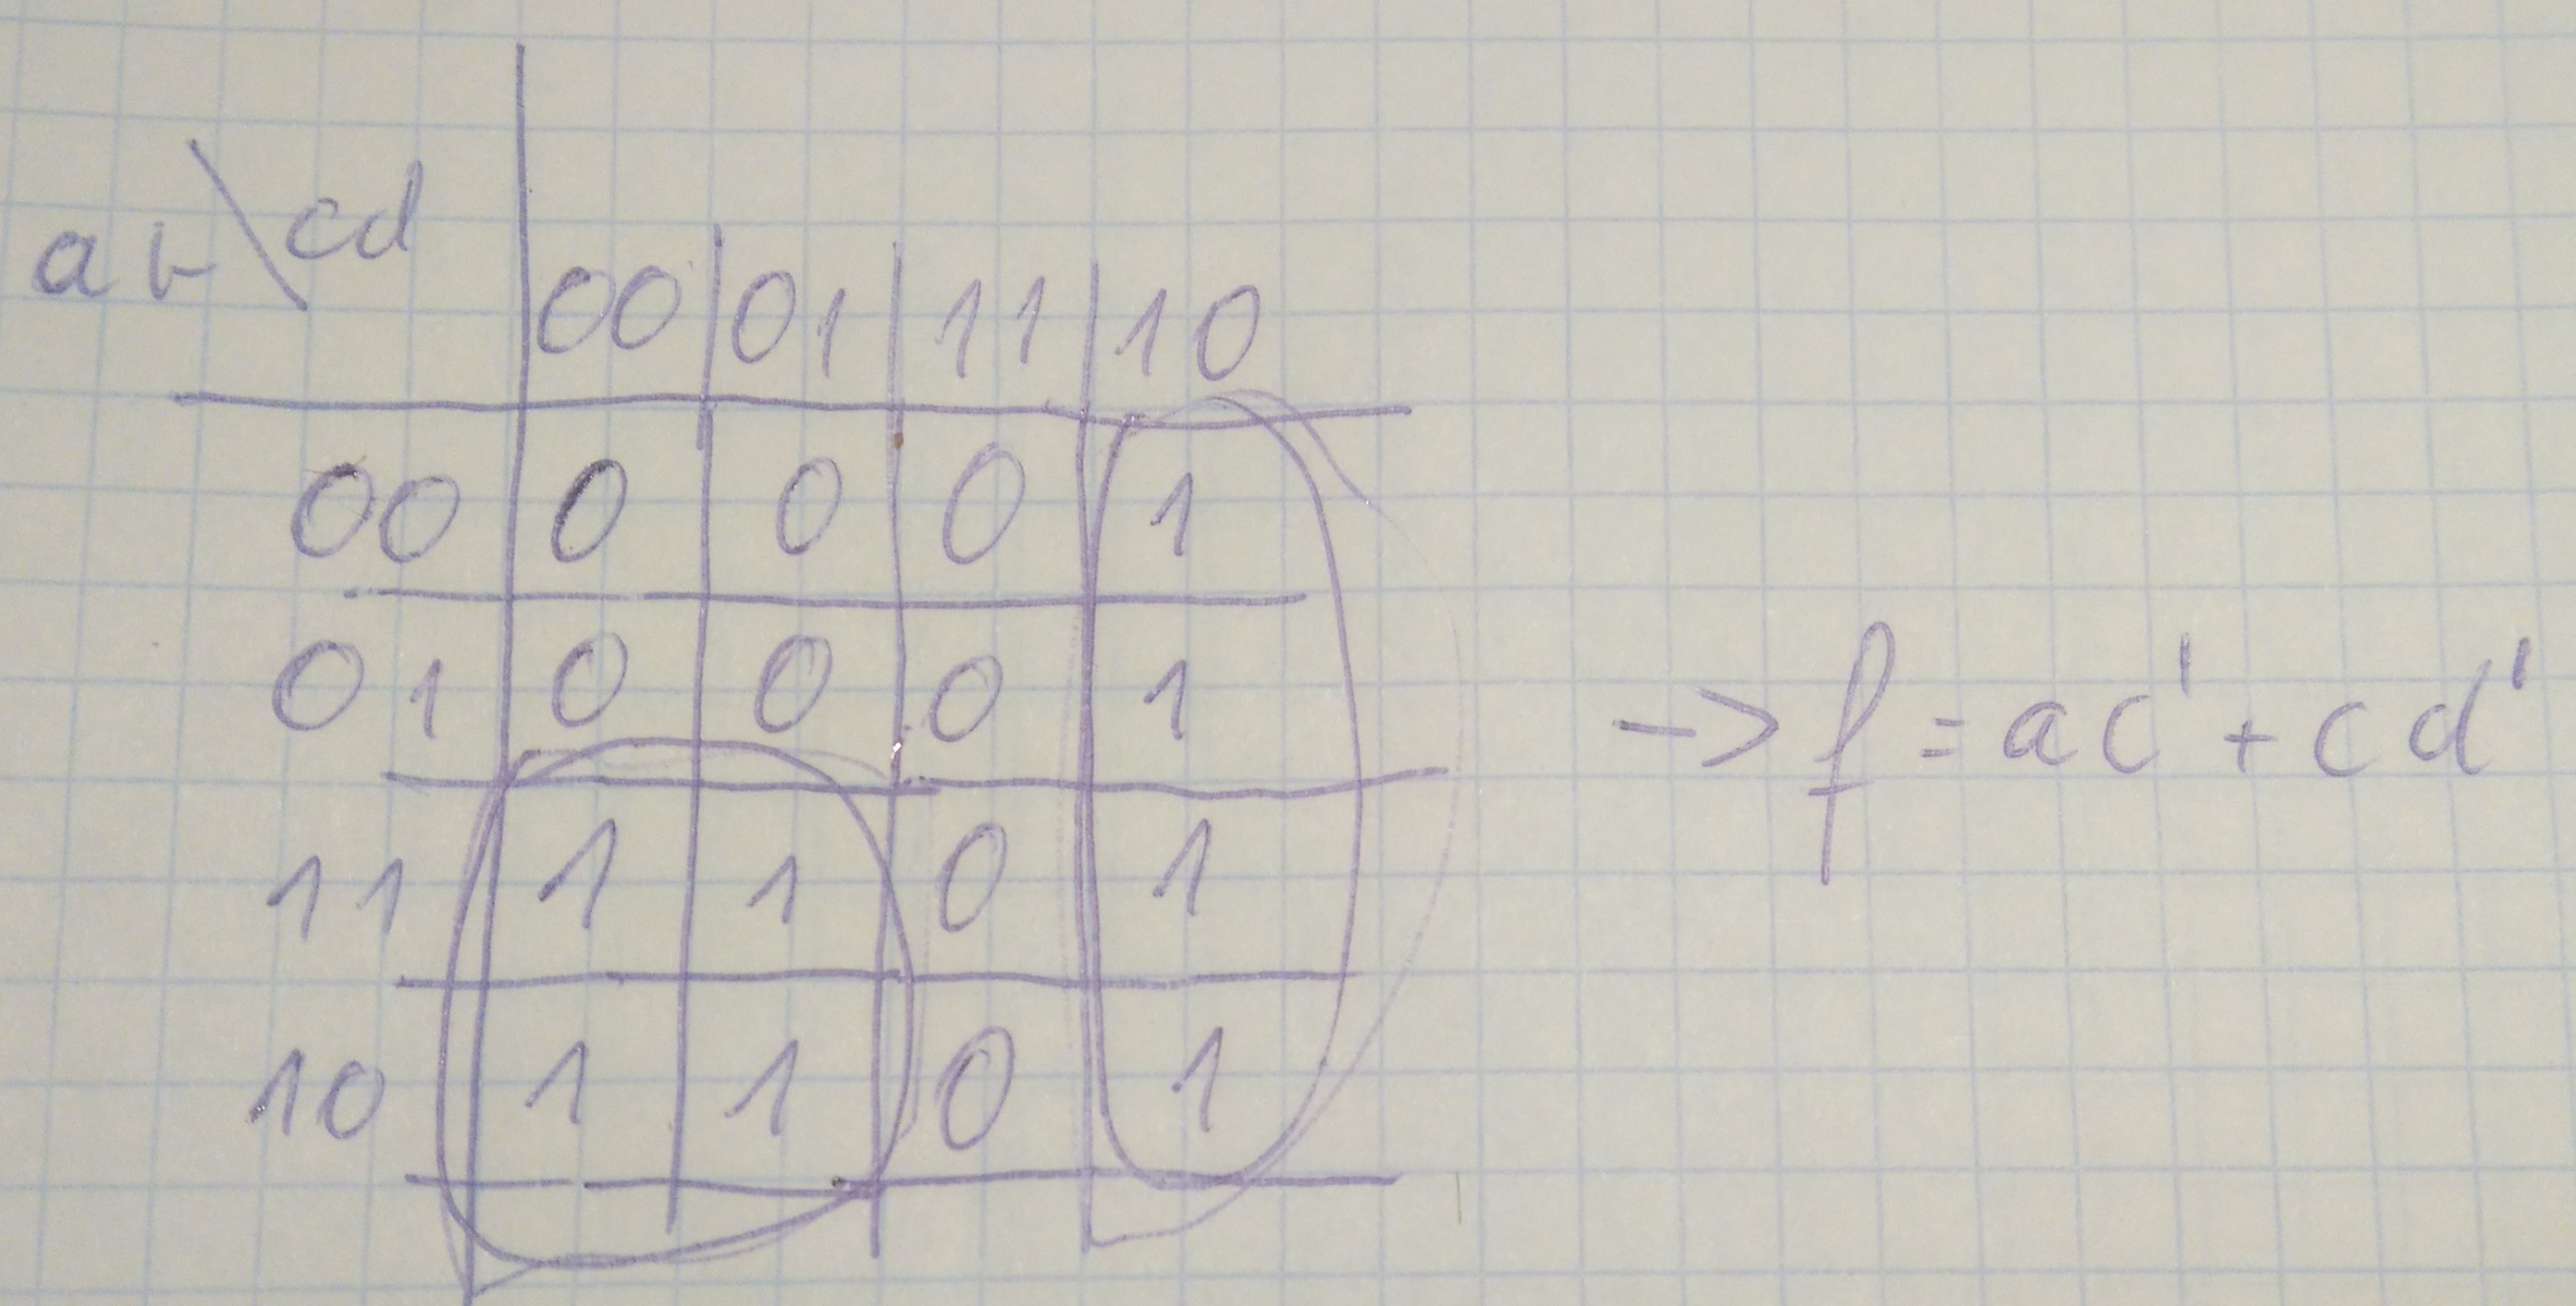 ab\cd
00 01 11 10
00 0 0 0 1
01 0 0 0 1
11 1 1 0 1
10 1 1 0 1
-> f = ac' + cd'